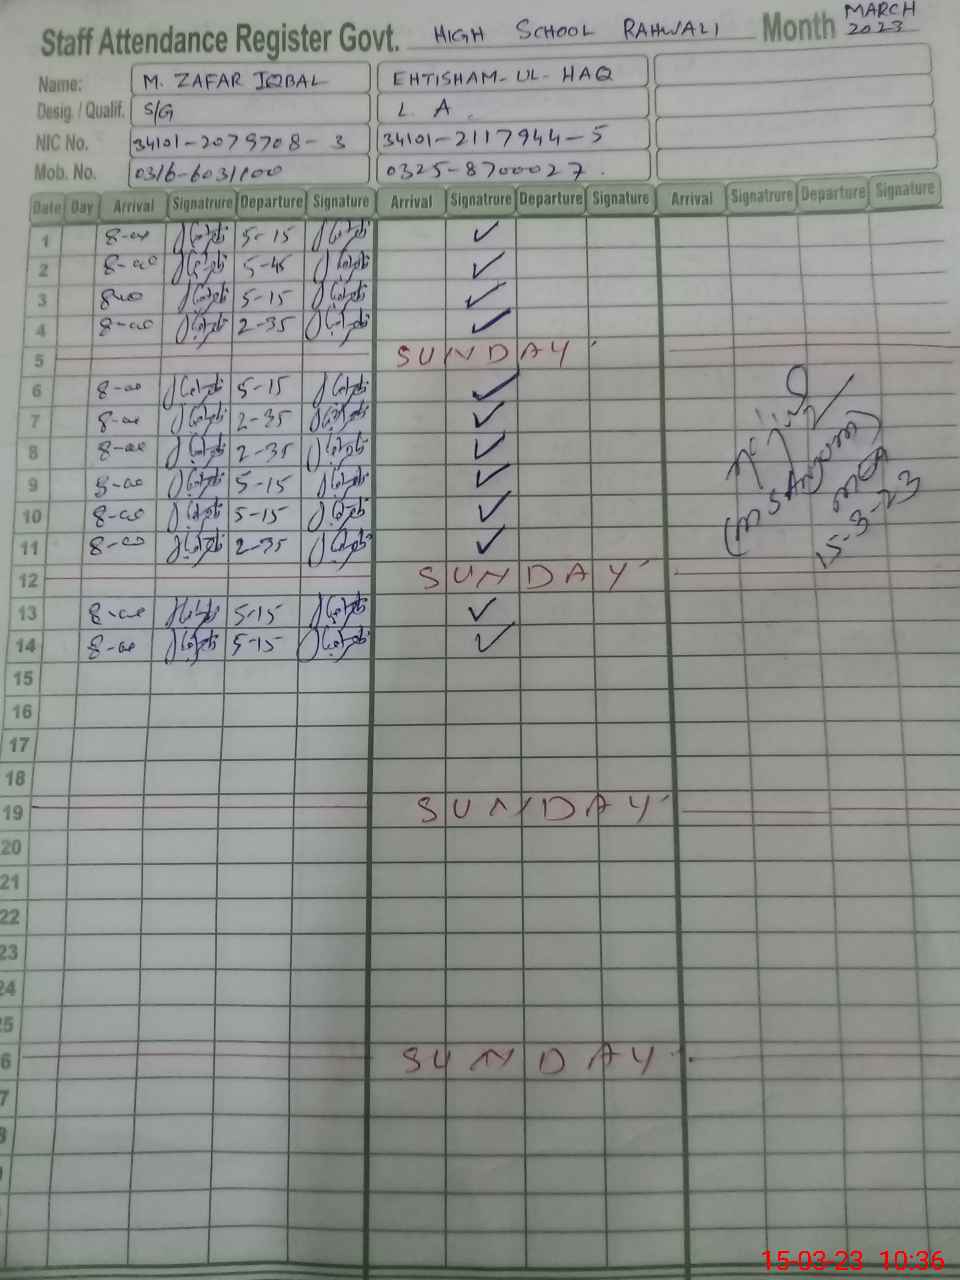 Staff Attendance Register Govt. HIGH SCHOOL RAHWALI Month MARCH 2023
Name: M. ZAFAR IQBAL EHTISHAM-UL-HAQ
Desig. / Qualif. S/G L. A.
NIC No. 34101-2079708-3 34101-2117944-5
Mob. No. 0316-6031100 0325-8700027.
Date Day Arrival Signatrure Departure Signature Arrival Signatrure Departure Signature Arrival Signatrure Departure Signature
1 8-00 5-15 ✓
2 8-00 5-45 ✓
3 8-00 5-15 ✓
4 8-00 2-35 ✓
5 SUNDAY
6 8-00 5-15 ✓
7 8-00 2-35 ✓
8 8-00 2-35 ✓
9 8-00 5-15 ✓
10 8-00 5-15 ✓
11 8-00 2-35 ✓
12 SUNDAY
13 8-00 5-15 ✓
14 8-00 5-15 ✓
15
16
17
18
19 SUNDAY
20
21
22
23
24
25
6 SUNDAY
7
8
MEA
15-3-23
15-03-23 10:36